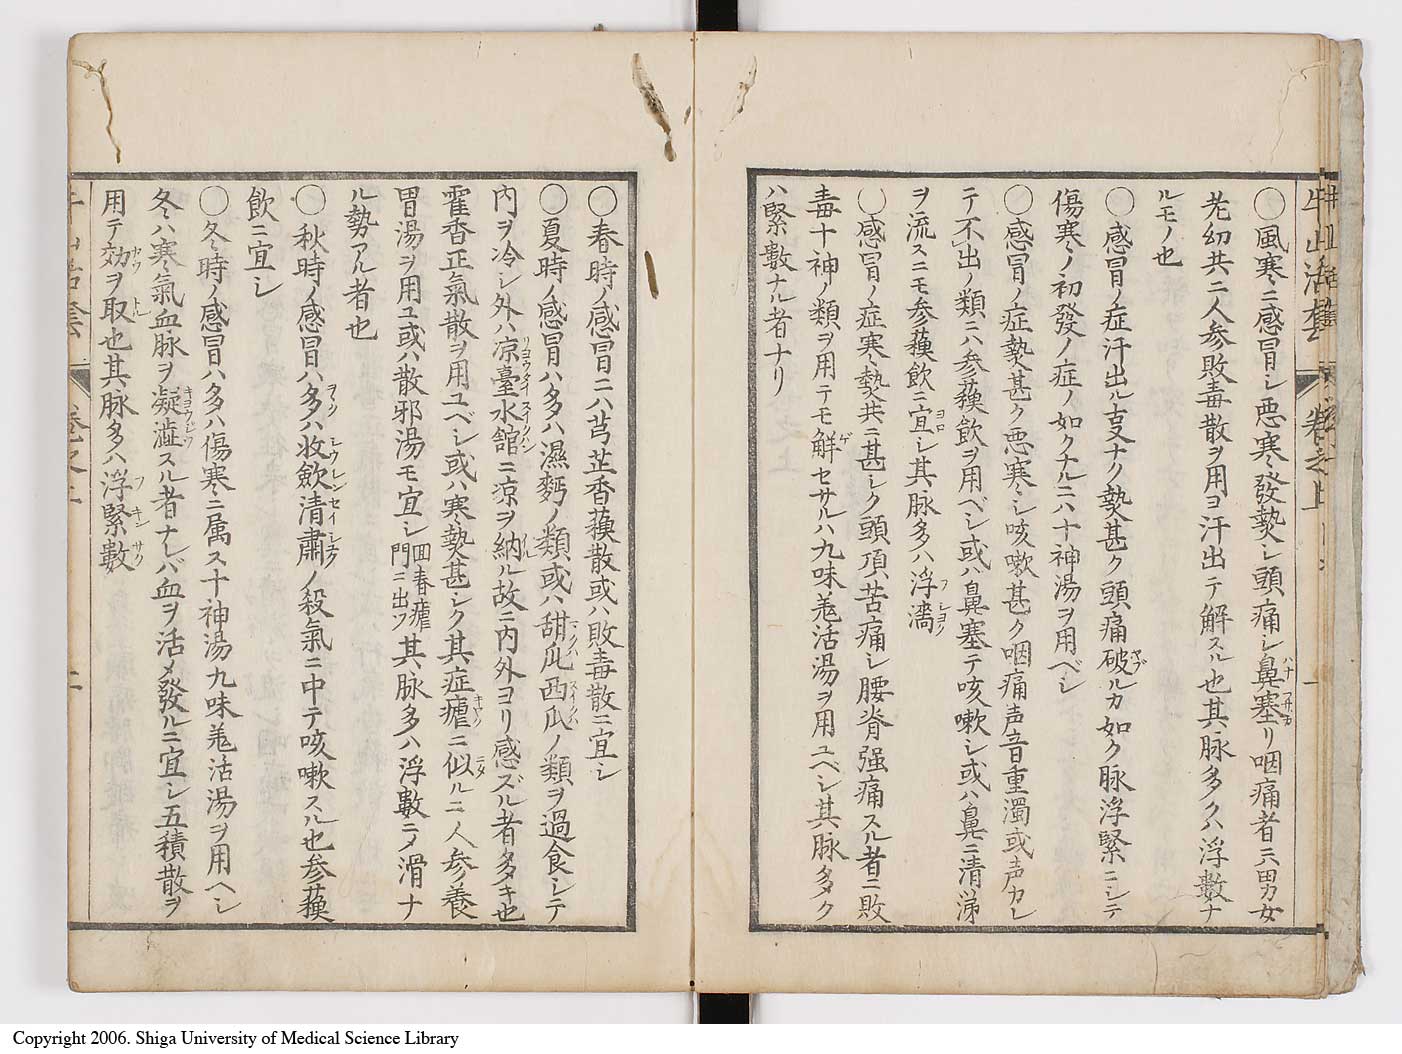 牛山活套 卷之上 一
〇風寒ニ感冒シ悪寒々發熱シ頭痛シ鼻塞リ咽痛者ニハ男女
老幼共ニ人参敗毒散ヲ用ヨ汗出テ解スル也其脉多クハ浮數ナ
ルモノ也
〇感冒ノ症汗出ル叓ナク熱甚ク頭痛破ルカ如ク脉浮緊ニシテ
傷寒ノ初發ノ症ノ如クナルニハ十神湯ヲ用ベシ
〇感冒ノ症熱甚ク悪寒シ咳嗽甚ク咽痛声音重濁或声カレ
テ不出ノ類ニハ参蘓飲ヲ用ベシ或ハ鼻塞テ咳嗽シ或ハ鼻ニ清涕
ヲ流スニモ参蘓飲ニ宜シ其脉多ハ浮濇
〇感冒ノ症寒熱共ニ甚シク頭項苦痛シ腰脊强痛スル者ニ敗
毒十神ノ類ヲ用テモ解セサルハ九味羗活湯ヲ用ユベシ其脉多ク
ハ緊數ナル者ナリ
〇春時ノ感冒ニハ芎芷香蘓散或ハ敗毒散ニ宜シ
〇夏時ノ感冒ハ多ハ濕麪ノ類或ハ甜瓜西瓜ノ類ヲ過食シテ
内ヲ冷シ外ハ凉臺水館ニ凉ヲ納ル故ニ内外ヨリ感ズル者多キ也
霍香正氣散ヲ用ユベシ或ハ寒熱甚シク其症瘧ニ似ルニハ人参養
胃湯ヲ用ユ或ハ散邪湯モ宜シ回春瘧門ニ出ツ其脉多ハ浮數ニメ滑ナ
ル勢アル者也
〇秋時ノ感冒ハ多ハ收歛清肅ノ殺氣ニ中テ咳嗽スル也参蘓
飲ニ宜シ
〇冬時ノ感冒ハ多ハ傷寒ニ属ス十神湯九味羗活湯ヲ用ヘシ
冬ハ寒氣血脉ヲ凝澁スル者ナレバ血ヲ活メ發ルニ宜シ五積散ヲ
用テ効ヲ取也其脉多ハ浮緊數